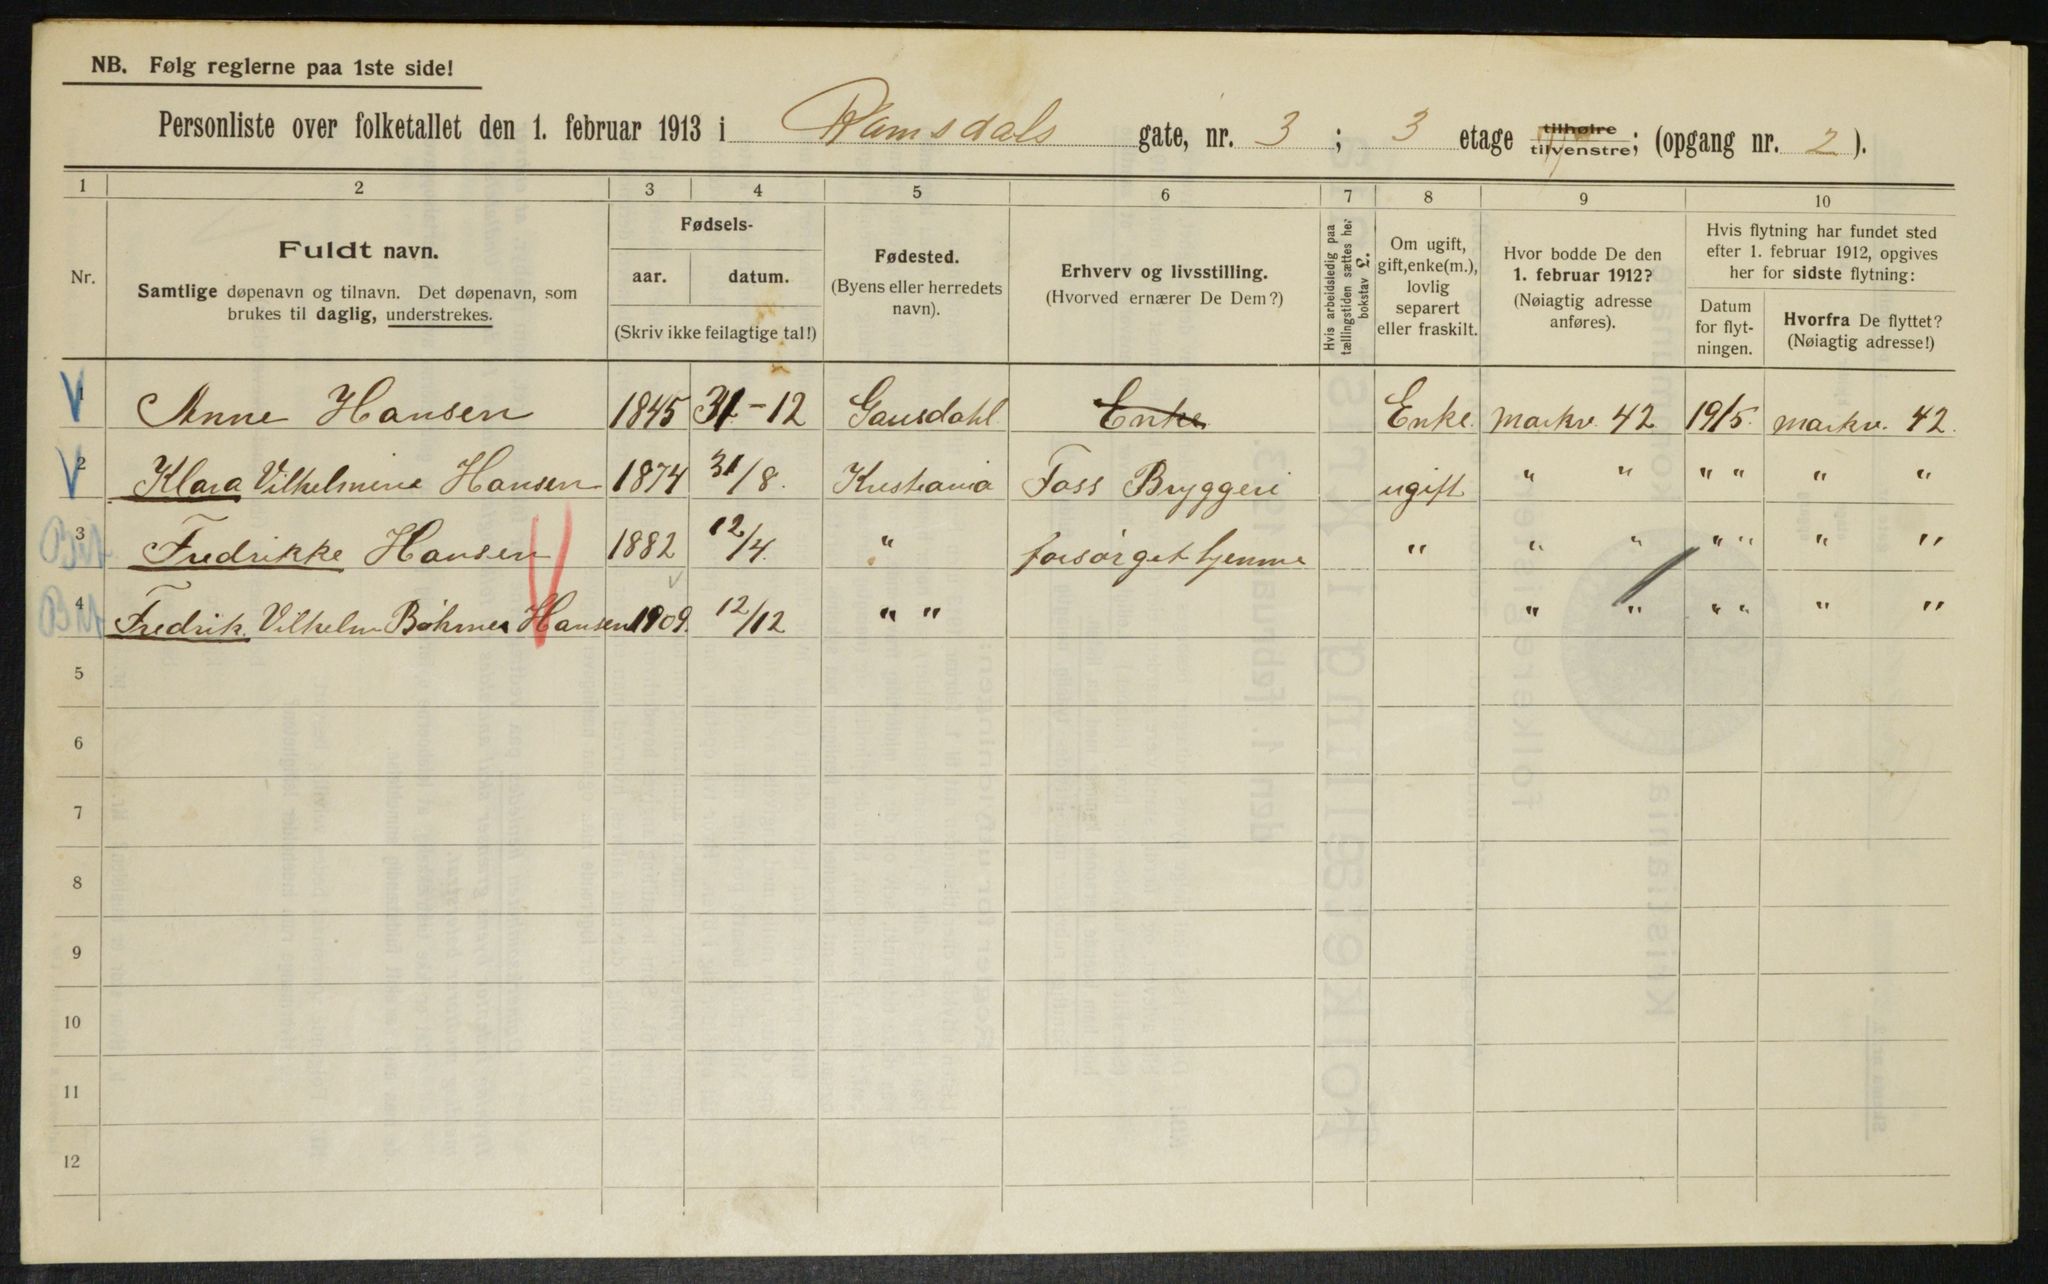 NB. Følg reglerne paa 1ste side!
Personliste over folketallet den 1. februar 1913 i Ramsdals gate, nr. 3 ; 3 etage tilhøire tilvenstre; (opgang nr. 2 ).
1 2 3 4 5 6 7 8 9 10
Nr.
Fuldt navn.
Samtlige døpenavn og tilnavn. Det døpenavn, som
brukes til daglig, understrekes.
Fødsels-
aar. datum.
(Skriv ikke feilagtige tal!)
Fødested.
(Byens eller herredets
navn).
Erhverv og livsstilling.
(Hvorved ernærer De Dem?)
Hvis arbeidsledig paa
tællingstiden sættes her
bokstav L.
Om ugift,
gift, enke(m.),
lovlig
separert
eller fraskilt.
Hvor bodde De den
1. februar 1912?
(Nøiagtig adresse
anføres).
Hvis flytning har fundet sted
efter 1. februar 1912, opgives
her for sidste flytning:
Datum
for flyt-
ningen.
Hvorfra De flyttet?
(Nøiagtig adresse!)
1 Anne Hansen 1845 31-12 Gausdahl Enke Enke Markv. 42 19/5. Markv. 42.
2 Klara Vilhelmine Hansen 1874 31/8. Kristiania Foss Bryggeri ugift " " " " " "
3 Fredrikke Hansen 1882 12/4. " forsørget hjemme " " " " " " "
4 Fredrik Vilhelm Bøhmer Hansen 1909. 12/12 " " " " " " " "
5
6
7
8
9
10
11
12